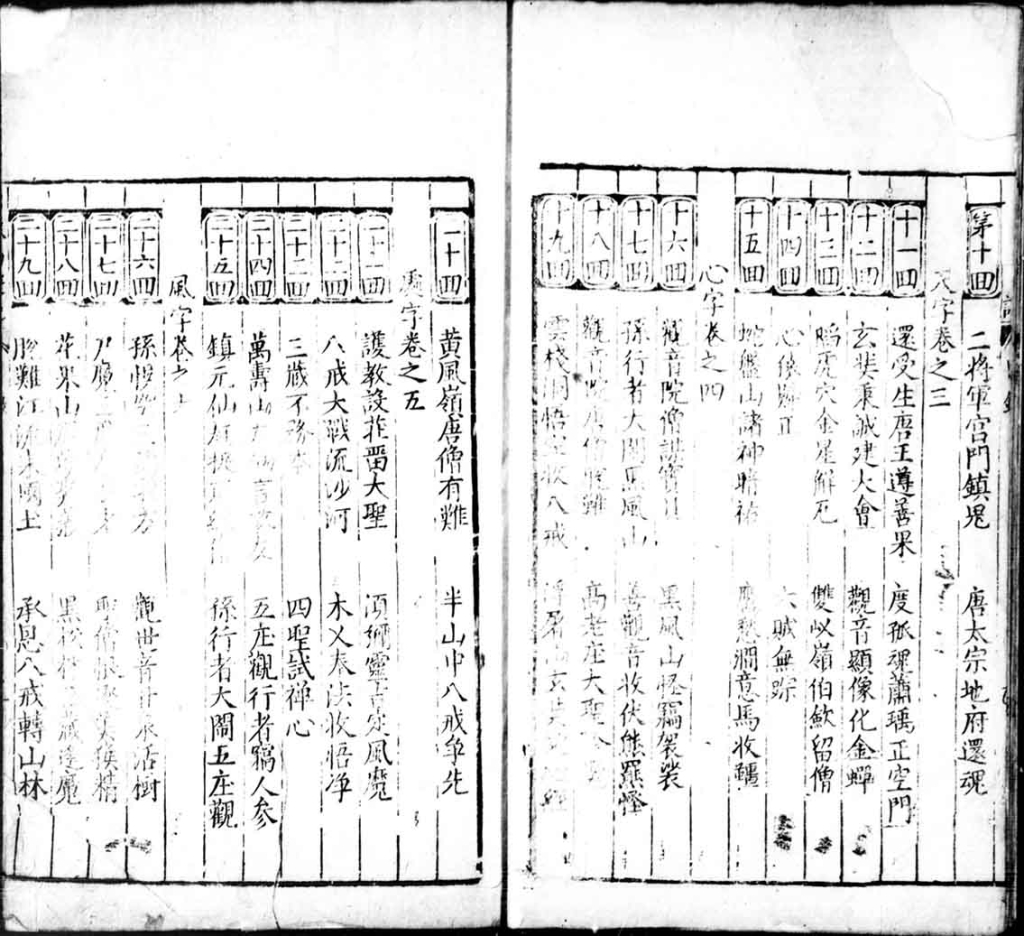 第十回 二將軍宮門鎮鬼 唐太宗地府還魂
天字卷之三
十一回 還受生唐王遵善果 度孤魂蕭瑀正空門
十二回 玄奘秉誠建大會 觀音顯像化金蟬
十三回 陷虎穴金星解厄 雙叉嶺伯欽留僧
十四回 心猿歸正 六賊無踪
十五回 蛇盤山諸神暗祐 鷹愁澗意馬收韁
心字卷之四
十六回 觀音院僧謀寶貝 黑風山怪竊袈裟
十七回 孫行者大鬧黑風山 善觀音收伏熊羆怪
十八回 觀音院唐僧脫難 高老庄大聖
十九回 雲棧洞悟空收八戒 浮屠山玄奘
處字卷之五
二十回 黃風嶺唐僧有難 半山中八戒爭先
二十一回 護教設莊留大聖 須彌靈吉定風魔
二十二回 八戒大戰流沙河 木叉奉法收悟淨
二十三回 三藏不 四聖試禪心
二十四回 萬壽山大仙 友 五庄觀行者竊人參
二十五回 鎮元仙趕捉 孫行者大鬧五庄觀
風字卷之
二十六回 孫悟空三 方 觀世音甘泉活樹
二十七回 尸魔三 聖僧恨逐美猴精
二十八回 花果山 黑松林三藏逢魔
二十九回 脫難江流來國土 承恩八戒轉山林